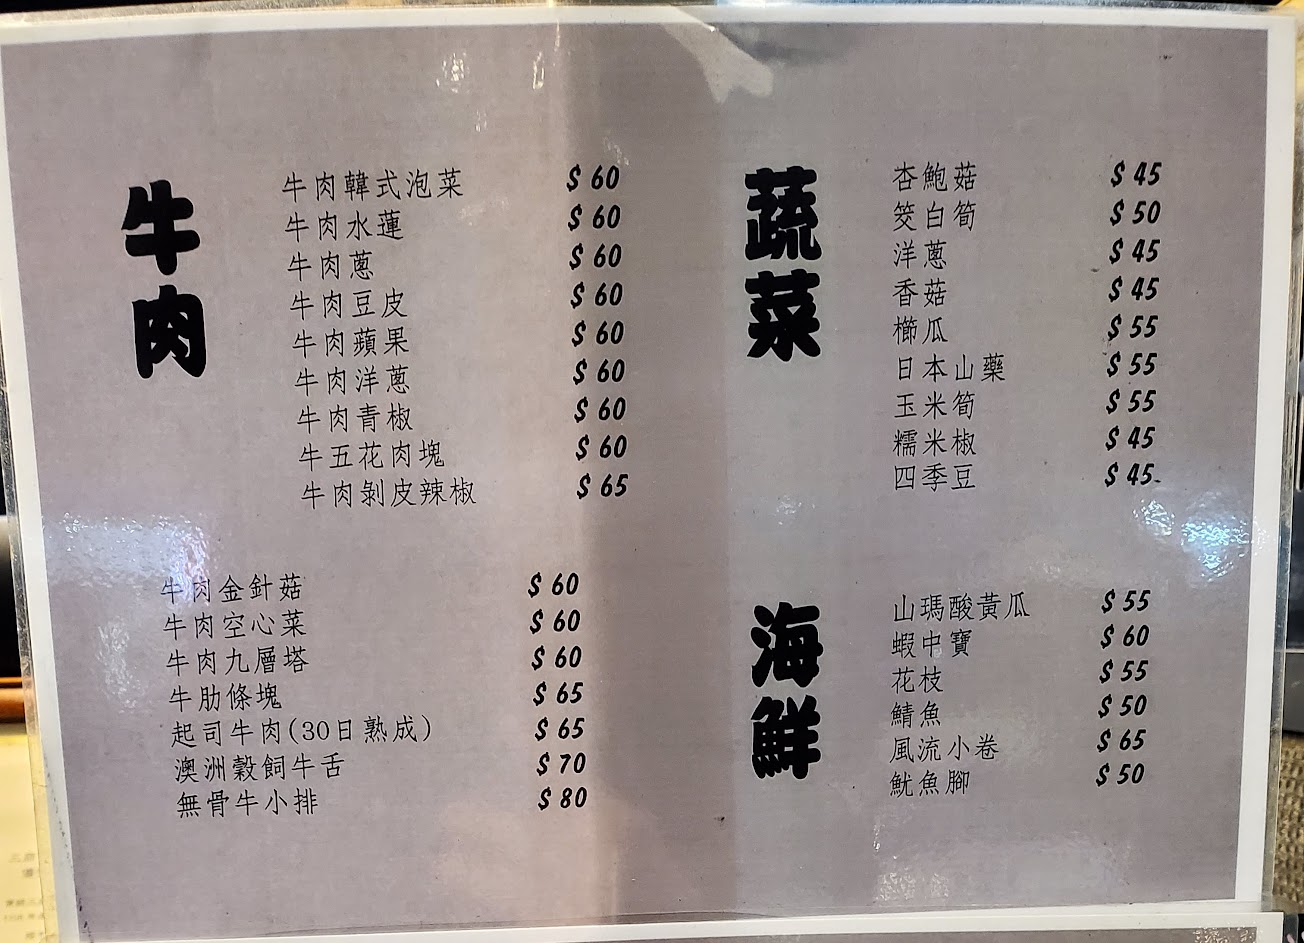 牛肉
牛肉韓式泡菜 $60
牛肉水蓮 $60
牛肉蔥 $60
牛肉豆皮 $60
牛肉蘋果 $60
牛肉洋蔥 $60
牛肉青椒 $60
牛五花肉塊 $60
牛肉剝皮辣椒 $65
牛肉金針菇 $60
牛肉空心菜 $60
牛肉九層塔 $60
牛肋條塊 $65
起司牛肉(30日熟成) $65
澳洲穀飼牛舌 $70
無骨牛小排 $80
蔬菜
杏鮑菇 $45
筊白筍 $50
洋蔥 $45
香菇 $45
櫛瓜 $55
日本山藥 $55
玉米筍 $55
糯米椒 $45
四季豆 $45
海鮮
山瑪酸黃瓜 $55
蝦中寶 $60
花枝 $55
鯖魚 $50
風流小卷 $65
魷魚腳 $50